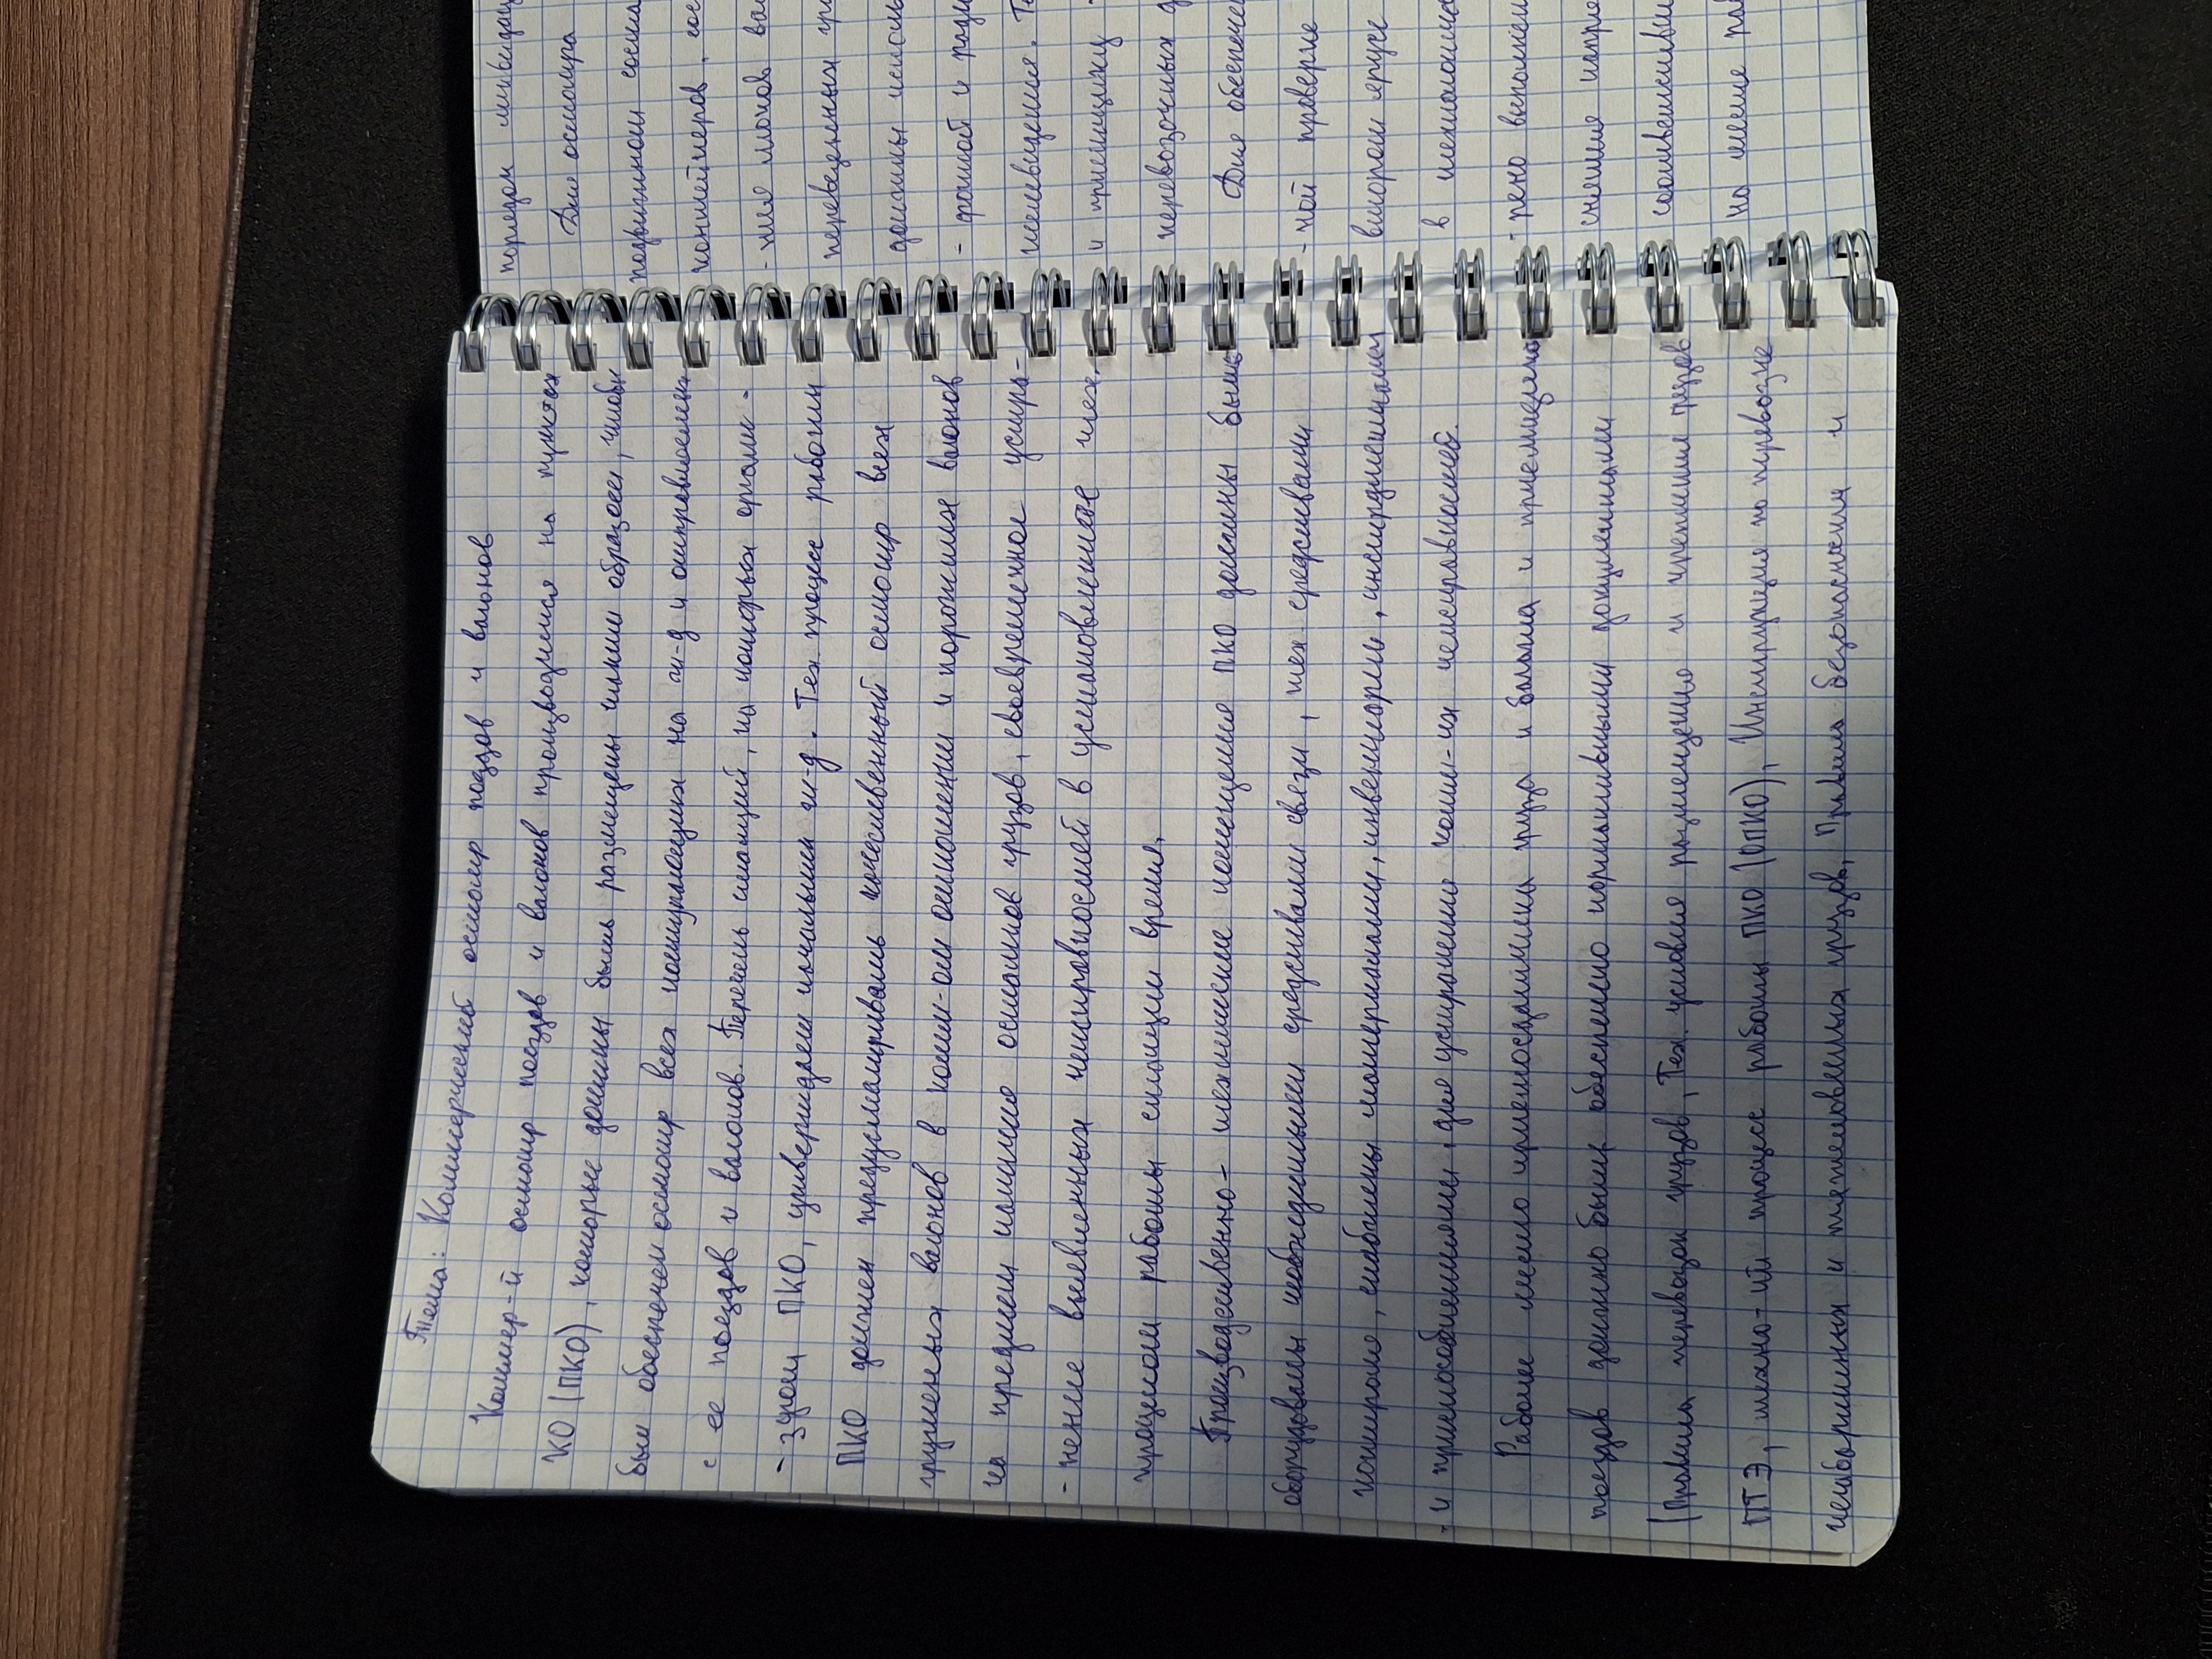 Тема: Коммерческий осмотр поездов и вагонов
Коммер-й осмотр поездов и вагонов производится на пунктах
КО (ПКО), которые должны быть размещены таким образом, чтобы
был обеспечен осмотр всех поступающих на ст-ю и отправляемых
с ее поездов и вагонов. Перечень станций, на которых органи-
-зуют ПКО, утверждает начальник ж-д. Тех. процесс работы
ПКО должен предусматривать качественный осмотр всех
груженых вагонов в комм-ом отношении и порожних вагонов
на предмет наличие остатков грузов, своевременное устра-
-нение выявленных неисправностей в установленное тех.
процессом работы станции время.
Производственно-технические помещения ПКО должны быть
оборудованы необходимыми средствами связи, тех-средствами
контроля, снабжены материалами, инвентарём, инструментами
-и приспособлениями, для устранения комм-их неисправностей.
Рабочее место приемосдатчика груза и багажа и приемщика
поездов должно быть обеспечено нормативными документами
(Правила перевозок грузов, Тех. условия размещения и крепления грузов
ПТЭ, техно-ий процесс работы ПКО (ОПКО), Инструкция по перевозке
негабаритных и тяжеловесных грузов, Правила безопасности и
порядок ликвидац
Для осмотра
подвижном соста
контейнеров, сос
перевозочных д
Для обеспечен
-ной проверке
втором ярусе
-рено выполнен